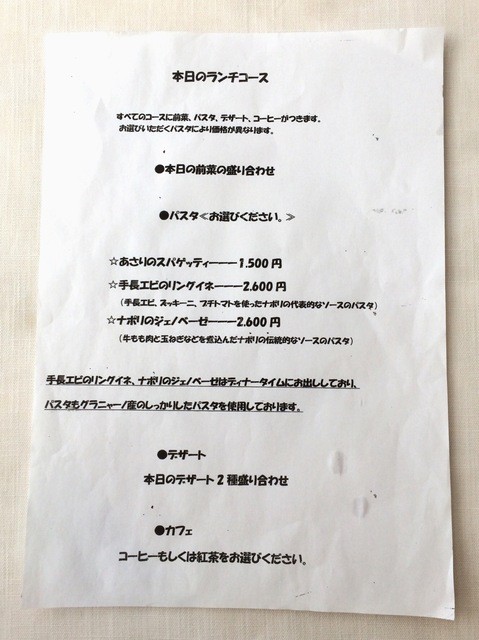 本日のランチコース
すべてのコースに前菜、パスタ、デザート、コーヒーがつきます。
お選びいただくパスタにより価格が異なります。
●本日の前菜の盛り合わせ
●パスタ≪お選びください。≫
☆あさりのスパゲッティーーー1.500円
☆手長エビのリングイネーー2.600円
（手長エビ、ズッキーニ、プチトマトを使ったナポリの代表的なソースのパスタ）
☆ナポリのジェノベーゼーー2.600円
（牛もも肉と玉ねぎなどを煮込んだナポリの伝統的なソースのパスタ）
手長エビのリングイネ、ナポリのジェノベーゼはディナータイムにお出ししており、
パスタもグラニャーノ産のしっかりしたパスタを使用しております。
●デザート
本日のデザート2種盛り合わせ
●カフェ
コーヒーもしくは紅茶をお選びください。